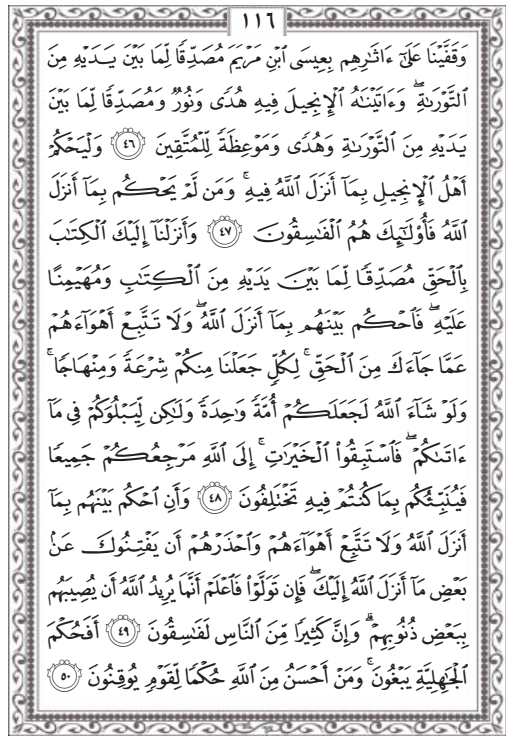 ١١٦
وَقَفَّيْنَا عَلَىٰٓ ءَاثَٰرِهِم بِعِيسَى ٱبْنِ مَرْيَمَ مُصَدِّقًا لِّمَا بَيْنَ يَدَيْهِ مِنَ
ٱلتَّوْرَىٰةِۖ وَءَاتَيْنَٰهُ ٱلْإِنجِيلَ فِيهِ هُدًى وَنُورٌ وَمُصَدِّقًا لِّمَا بَيْنَ
يَدَيْهِ مِنَ ٱلتَّوْرَىٰةِ وَهُدًى وَمَوْعِظَةً لِّلْمُتَّقِينَ ٤٦ وَلْيَحْكُمْ
أَهْلُ ٱلْإِنجِيلِ بِمَآ أَنزَلَ ٱللَّهُ فِيهِۚ وَمَن لَّمْ يَحْكُم بِمَآ أَنزَلَ
ٱللَّهُ فَأُو۟لَٰٓئِكَ هُمُ ٱلْفَٰسِقُونَ ٤٧ وَأَنزَلْنَآ إِلَيْكَ ٱلْكِتَٰبَ
بِٱلْحَقِّ مُصَدِّقًا لِّمَا بَيْنَ يَدَيْهِ مِنَ ٱلْكِتَٰبِ وَمُهَيْمِنًا
عَلَيْهِۖ فَٱحْكُم بَيْنَهُم بِمَآ أَنزَلَ ٱللَّهُۖ وَلَا تَتَّبِعْ أَهْوَآءَهُمْ
عَمَّا جَآءَكَ مِنَ ٱلْحَقِّۚ لِكُلٍّ جَعَلْنَا مِنكُمْ شِرْعَةً وَمِنْهَاجًاۚ
وَلَوْ شَآءَ ٱللَّهُ لَجَعَلَكُمْ أُمَّةً وَٰحِدَةً وَلَٰكِن لِّيَبْلُوَكُمْ فِى مَآ
ءَاتَىٰكُمْۖ فَٱسْتَبِقُوا۟ ٱلْخَيْرَٰتِۚ إِلَى ٱللَّهِ مَرْجِعُكُمْ جَمِيعًا
فَيُنَبِّئُكُم بِمَا كُنتُمْ فِيهِ تَخْتَلِفُونَ ٤٨ وَأَنِ ٱحْكُم بَيْنَهُم بِمَآ
أَنزَلَ ٱللَّهُ وَلَا تَتَّبِعْ أَهْوَآءَهُمْ وَٱحْذَرْهُمْ أَن يَفْتِنُوكَ عَنۢ
بَعْضِ مَآ أَنزَلَ ٱللَّهُ إِلَيْكَۖ فَإِن تَوَلَّوْا۟ فَٱعْلَمْ أَنَّمَا يُرِيدُ ٱللَّهُ أَن يُصِيبَهُم
بِبَعْضِ ذُنُوبِهِمْۗ وَإِنَّ كَثِيرًا مِّنَ ٱلنَّاسِ لَفَٰسِقُونَ ٤٩ أَفَحُكْمَ
ٱلْجَٰهِلِيَّةِ يَبْغُونَۚ وَمَنْ أَحْسَنُ مِنَ ٱللَّهِ حُكْمًا لِّقَوْمٍ يُوقِنُونَ ٥٠